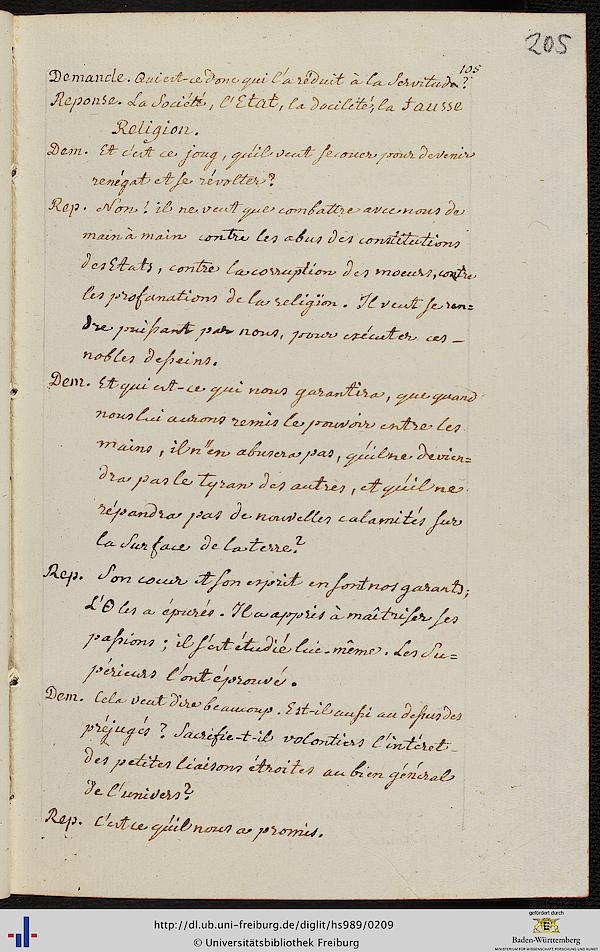 205
105
Demande. Qui est-ce donc qui l'a réduit à la Servitude?
Reponse. La Société, l'Etat, la docilété, la fausse
Religion.
Dem. Et c'est ce joug, qu'il veut secouer pour devenir
renégat et se révolter?
Rep. Non! il ne veut que combattre avec nous de
main à main contre les abus des constitutions
des Etats, contre la corruption des moeurs, contre
les profanations de la religion. Il veut se ren=
dre puissant par nous, pour exécuter ces -
nobles desseins.
Dem. Et qui est-ce qui nous garantira, que quand
nous lui aurons remis le pouvoir entre les
mains, il n'en abusera pas, qu'il ne devien=
dra pas le tyran des autres, et qu'il ne
répandra pas de nouvelles calamités sur
la Surface de la terre?
Rep. Son coeur et son esprit en sont nos garants;
L'O les a épurés. Il a appris à maîtriser ses
passions; il s'est étudié lui-même. Les Su=
périeurs l'ont éprouvé.
Dem. Cela veut dire beaucoup. Est-il aussi au dessus des
préjugés? Sacrifie-t-il volontiers l'intéret -
des petites liaisons étroites au bien général
de l'univers?
Rep. C'est ce qu'il nous a promis.
http://dl.ub.uni-freiburg.de/diglit/hs989/0209
© Universitätsbibliothek Freiburg
gefördert durch
Baden-Württemberg
MINISTERIUM FÜR WISSENSCHAFT, FORSCHUNG UND KUNST